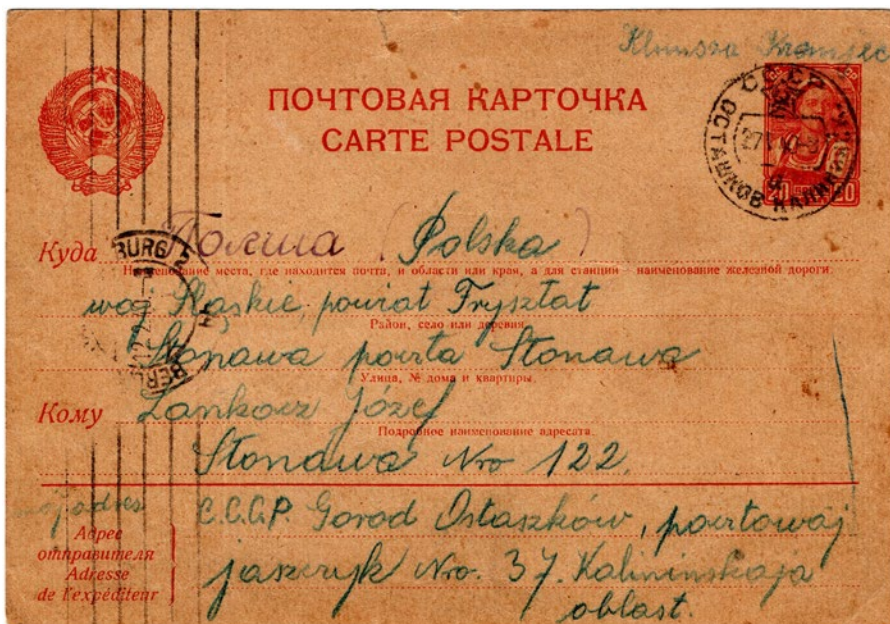 ПОЧТОВАЯ КАРТОЧКА
CARTE POSTALE
СССР
ОСТАШКОВ КАЛИНИН
20 20
Куда Польша (Polska)
Наименование места, где находится почта, и области или края, а для станций — наименование железной дороги.
woj Sląskie, powiat Frysztat
Район, село или деревня.
Stonawa poczta Stonawa
Улица, № дома и квартиры.
BURG 2
BERL
Кому Zankocz Józef
Подробное наименование адресата.
Stonawa Nro 122.
adres
Адрес
отправителя
Adresse
de l'expéditeur
C.C.C.P. Gorod Ostaszków, pocztowaj
jaszczyk Nro. 37. Kalininskaja
oblast.